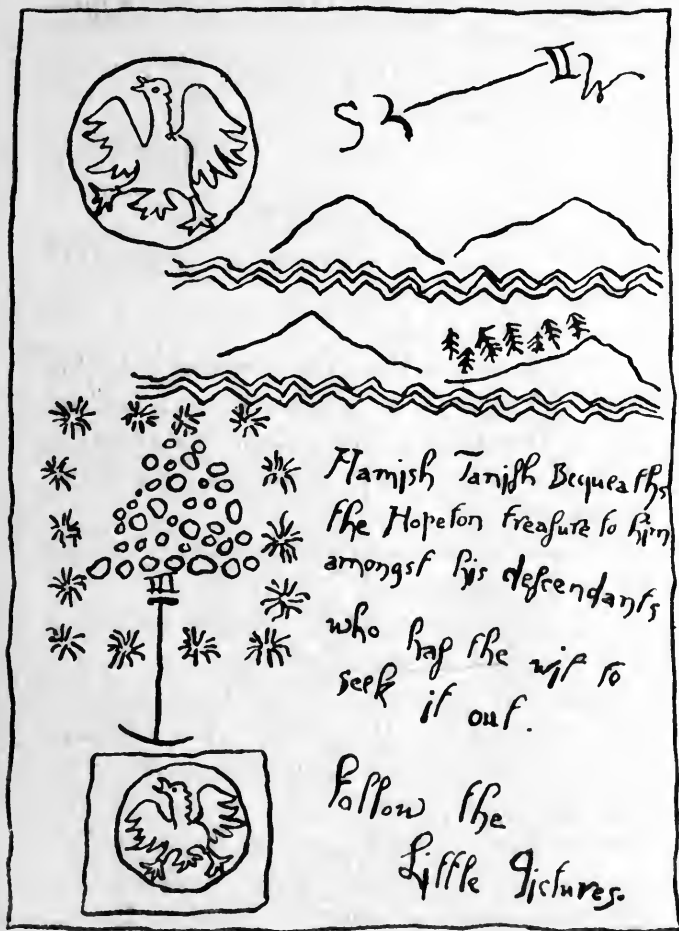 II W
S R
Hamish Taniſh Bequeaths
the Hopeton treaſure to him
amongst his deſcendants
II
who haſ the wit to
seek it out.
Follow the
Little Pictures.